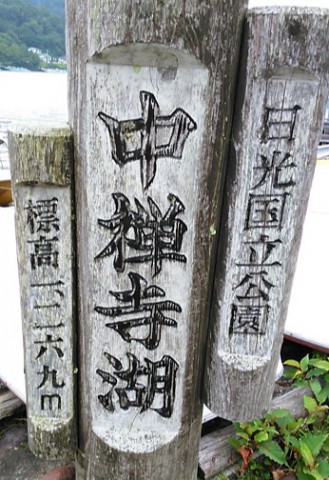 日光国立公園
中禅寺湖
標高一、二六九m